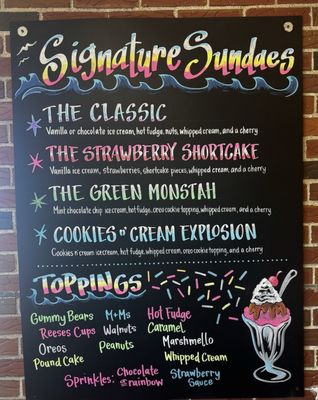 Signature Sundaes
THE CLASSIC
Vanilla or chocolate ice cream, hot fudge, nuts, whipped cream, and a cherry
THE STRAWBERRY SHORTCAKE
Vanilla ice cream, strawberries, shortcake pieces, whipped cream, and a cherry
THE GREEN MONSTAH
Mint chocolate chip ice cream, hot fudge, oreo cookie topping, whipped cream, and a cherry
COOKIES n' CREAM EXPLOSION
Cookies n' cream icecream, hot fudge, whipped cream, oreo cookie topping, and a cherry
TOPPINGS
Gummy Bears M+Ms Hot Fudge
Reeses Cups Walnuts Caramel
Oreos Peanuts Marshmello
Pound Cake Whipped Cream
Sprinkles: Chocolate or rainbow
Strawberry Sauce